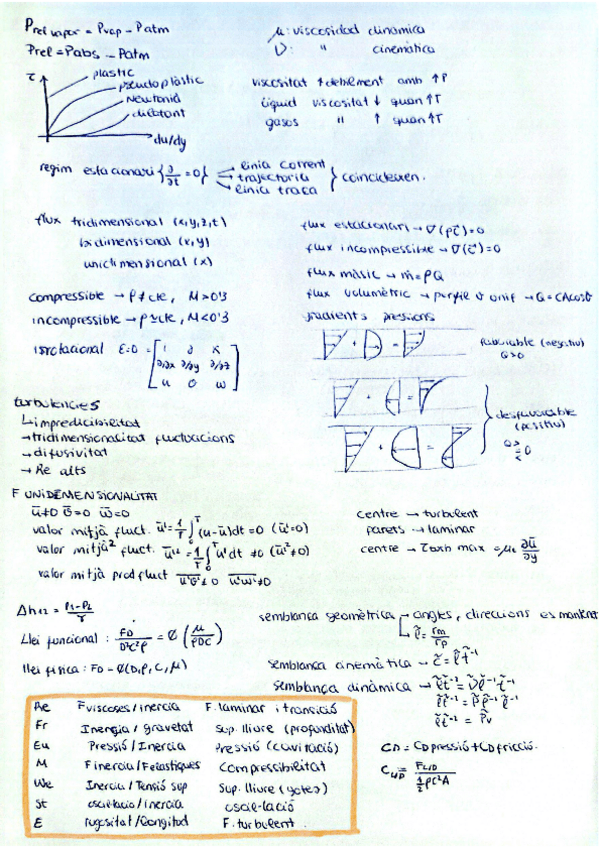 Prel vapor = Pvap - Patm
Prel = Pabs - Patm
μ: viscosidad dinámica
ν: " cinemática
τ
plastic
pseudoplàstic
Newtonià
dilatant
du/dy
viscositat ↑ debilment amb ↑P
líquid viscositat ↓ quan ↑T
gasos " ↑ quan ↑T
regim estacionari {∂/∂t = 0} línia corrent
trajectoria
línia traça
coincideixen.
flux tridimensional (x,y,z,t)
bidimensional (x,y)
unidimensional (x)
flux estacionari → ∇(ρc⃗)=0
flux incompressible → ∇(c⃗)=0
flux màsic → ṁ = ρQ
flux volumètric → perfil v unif → Q = CAcosθ
compressible → ρ ≠ cte, M > 0'3
incompressible → ρ ≃ cte, M < 0'3
gradients pressions
favorable (negatiu)
Q>0
irrotacional ξ=0 = [i j k
∂/∂x ∂/∂y ∂/∂z
u v w]
desfavorable
(positiu)
Q ><= 0
turbulències
↳ impredicibilitat
→ tridimensionalitat fluctuacions
→ difusivitat
→ Re alts
F UNIDIMENSIONALITAT
ū≠0 v̄=0 w̄=0
valor mitjà fluct. ū' = 1/T ∫₀ᵀ (u-ū)dt = 0 (ū'=0)
valor mitjà² fluct. ū'² = 1/T ∫₀ᵀ u'dt ≠0 (ū'²≠0)
valor mitjà prod fluct u'v'≠0 u'w'≠0
centre → turbulent
parets → laminar
centre → Tturb max = μt ∂ū/∂y
Δh12 = (P1-P2)/γ
Llei funcional: FD/(D²C²ρ) = Ø (μ/(ρDC))
llei física: FD = Ø(D,ρ,C,μ)
semblança geomètrica → angles, direccions es mantenen
→ l̃ = rm/rp
semblança cinemàtica → c̃ = l̃ t̃⁻¹
semblança dinàmica → l̃t̃⁻² = ν̃ l̃⁻¹ t̃⁻¹
l̃t̃⁻² = p̃ρ̃⁻¹ l̃⁻¹
Re F viscoses / inercia F. laminar i transició
Fr Inercia / gravetat Sup. lliure (profunditat)
Eu Pressió / Inercia Pressió (cavitació)
M F inercia / F elastiques Compressibilitat
We Inercia / Tensió sup Sup. lliure (gotes)
St oscil·lacio / inercia oscil·lació
E rugositat / Longitud F. turbulent
CD = CD pressió + CD fricció.
CL/D = FL/D / (½ρC²A)